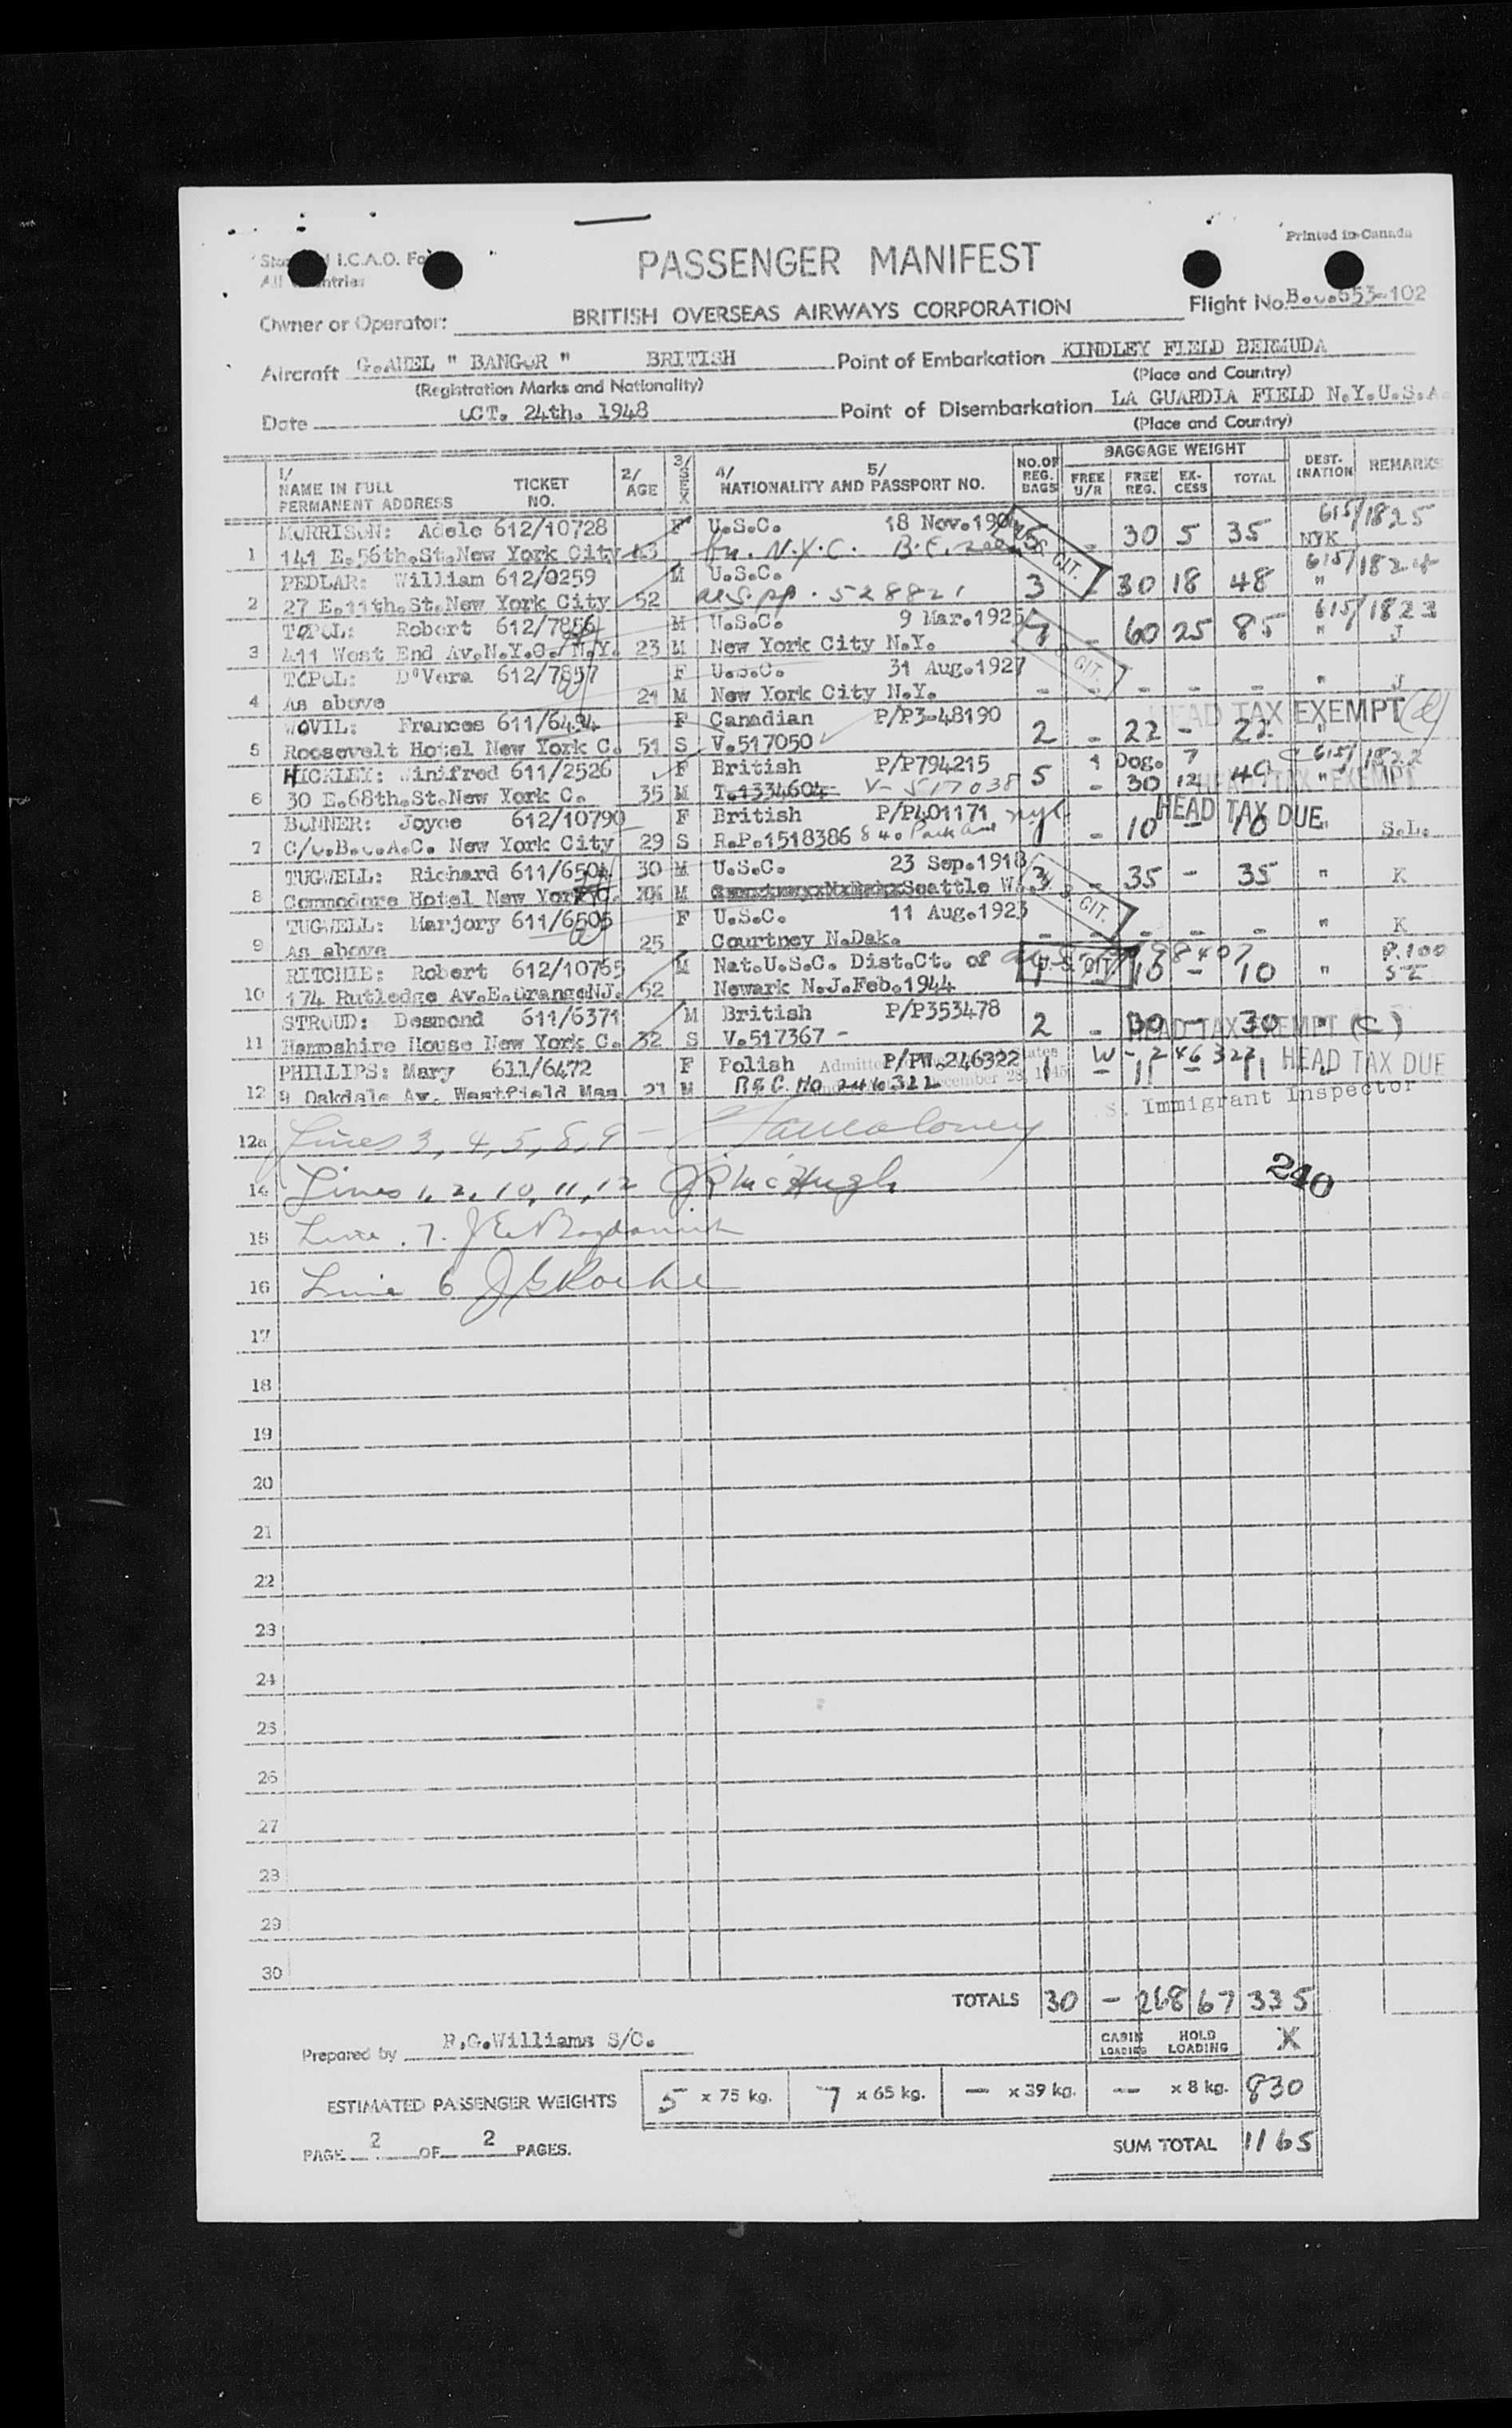 Printed in Canada
I.C.A.O.
All
PASSENGER MANIFEST
Owner or Operator: BRITISH OVERSEAS AIRWAYS CORPORATION Flight No. 102
Aircraft " BANGOR " BRITISH Point of Embarkation KINDLEY FIELD BERMUDA
(Registration Marks and Nationality) (Place and Country)
Date OCT. 24th. 1948 Point of Disembarkation LA GUARDIA FIELD N.Y.U.S.A.
(Place and Country)
1/ NAME IN FULL PERMANENT ADDRESS TICKET NO. 2/ AGE 3/ SEX 4/ 5/ NATIONALITY AND PASSPORT NO. NO. OF REG. BAGS BAGGAGE WEIGHT FREE U/R FREE REG. EX-CESS TOTAL DEST-INATION REMARKS
MORRISON: Adele 612/10728 F U.S.C. 18 Nov. 615/1825
1 141 E.56th.St.New York City N.Y.C. - 30 5 35 NYK
PEDLAR: William 612/0259 M U.S.C. 615/1824
2 27 E.11th.St.New York City 52 U.S. pp. 528821 3 30 18 48 "
TOPOL: Robert 612/7856 M U.S.C. 9 Mar.1925 615/1823
3 411 West End Av.N.Y.C. N.Y. 23 M New York City N.Y. 7 - 60 25 85 " J
TOPOL: D'Vera 612/7857 F U.S.C. 31 Aug.1927
4 As above 21 M New York City N.Y. - - - - - " J
WOVIL: Frances 611/6494 F Canadian P/P3-48190 HEAD TAX EXEMPT
5 Roosevelt Hotel New York C. 51 S V.517050 2 - 22 - 22 "
HICKLEY: Winifred 611/2526 F British P/P794215 1 Dog. 7 615/1822
6 30 E.68th.St.New York C. 35 M T.1334604 V-517038 5 - 30 12 49 " HEAD TAX EXEMPT
BONNER: Joyce 612/10790 F British P/P401171 HEAD TAX DUE
7 C/O.B.O.A.C. New York City 29 S R.P.1518386 840 Park Ave 1 - 10 - 10 " S.L.
TUGWELL: Richard 611/6504 30 M U.S.C. 23 Sep.1918
8 Commodore Hotel New York C. M Seattle 3 - 35 - 35 " K
TUGWELL: Marjory 611/6505 F U.S.C. 11 Aug.1923
9 As above 25 Courtney N.Dak. - - - - - " K
RITCHIE: Robert 612/10765 M Nat.U.S.C. Dist.Ct. of P.100
10 174 Rutledge Av.E.OrangeNJ. 52 Newark N.J.Feb.1944 U.S. CIT. 1 10 - 10 "
STROUD: Desmond 611/6371 M British P/P353478
11 Hampshire House New York C. 32 S V.517367 - 2 - 30 - 30 " HEAD TAX EXEMPT (C)
PHILLIPS: Mary 611/6472 F Polish P/PW.246322 W-246322 HEAD TAX DUE
12 9 Oakdale Av. Westfield Mas 21 M REC. NO. 246322 1 - 11 - 11 "
Immigrant Inspector
12a Lines 3, 4, 5, 8, 9 -
240
14 Lines 1, 2, 10, 11, 12 J P McHugh
15 Line . 7. J E
16 Line 6 J G Roche
17
18
19
20
21
22
23
24
25
26
27
28
29
30
TOTALS 30 - 268 67 335
Prepared by R.G.Williams S/O. CABIN LOADING HOLD LOADING X
ESTIMATED PASSENGER WEIGHTS 5 x 75 kg. 7 x 65 kg. - x 39 kg. - x 8 kg. 830
PAGE 2 OF 2 PAGES. SUM TOTAL 1165